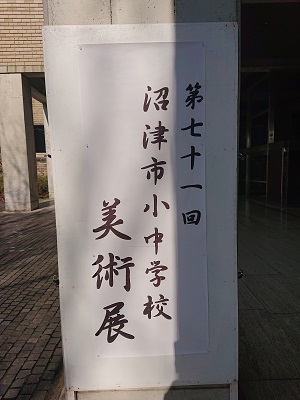 第七十一回
沼津市小中学校
美術展